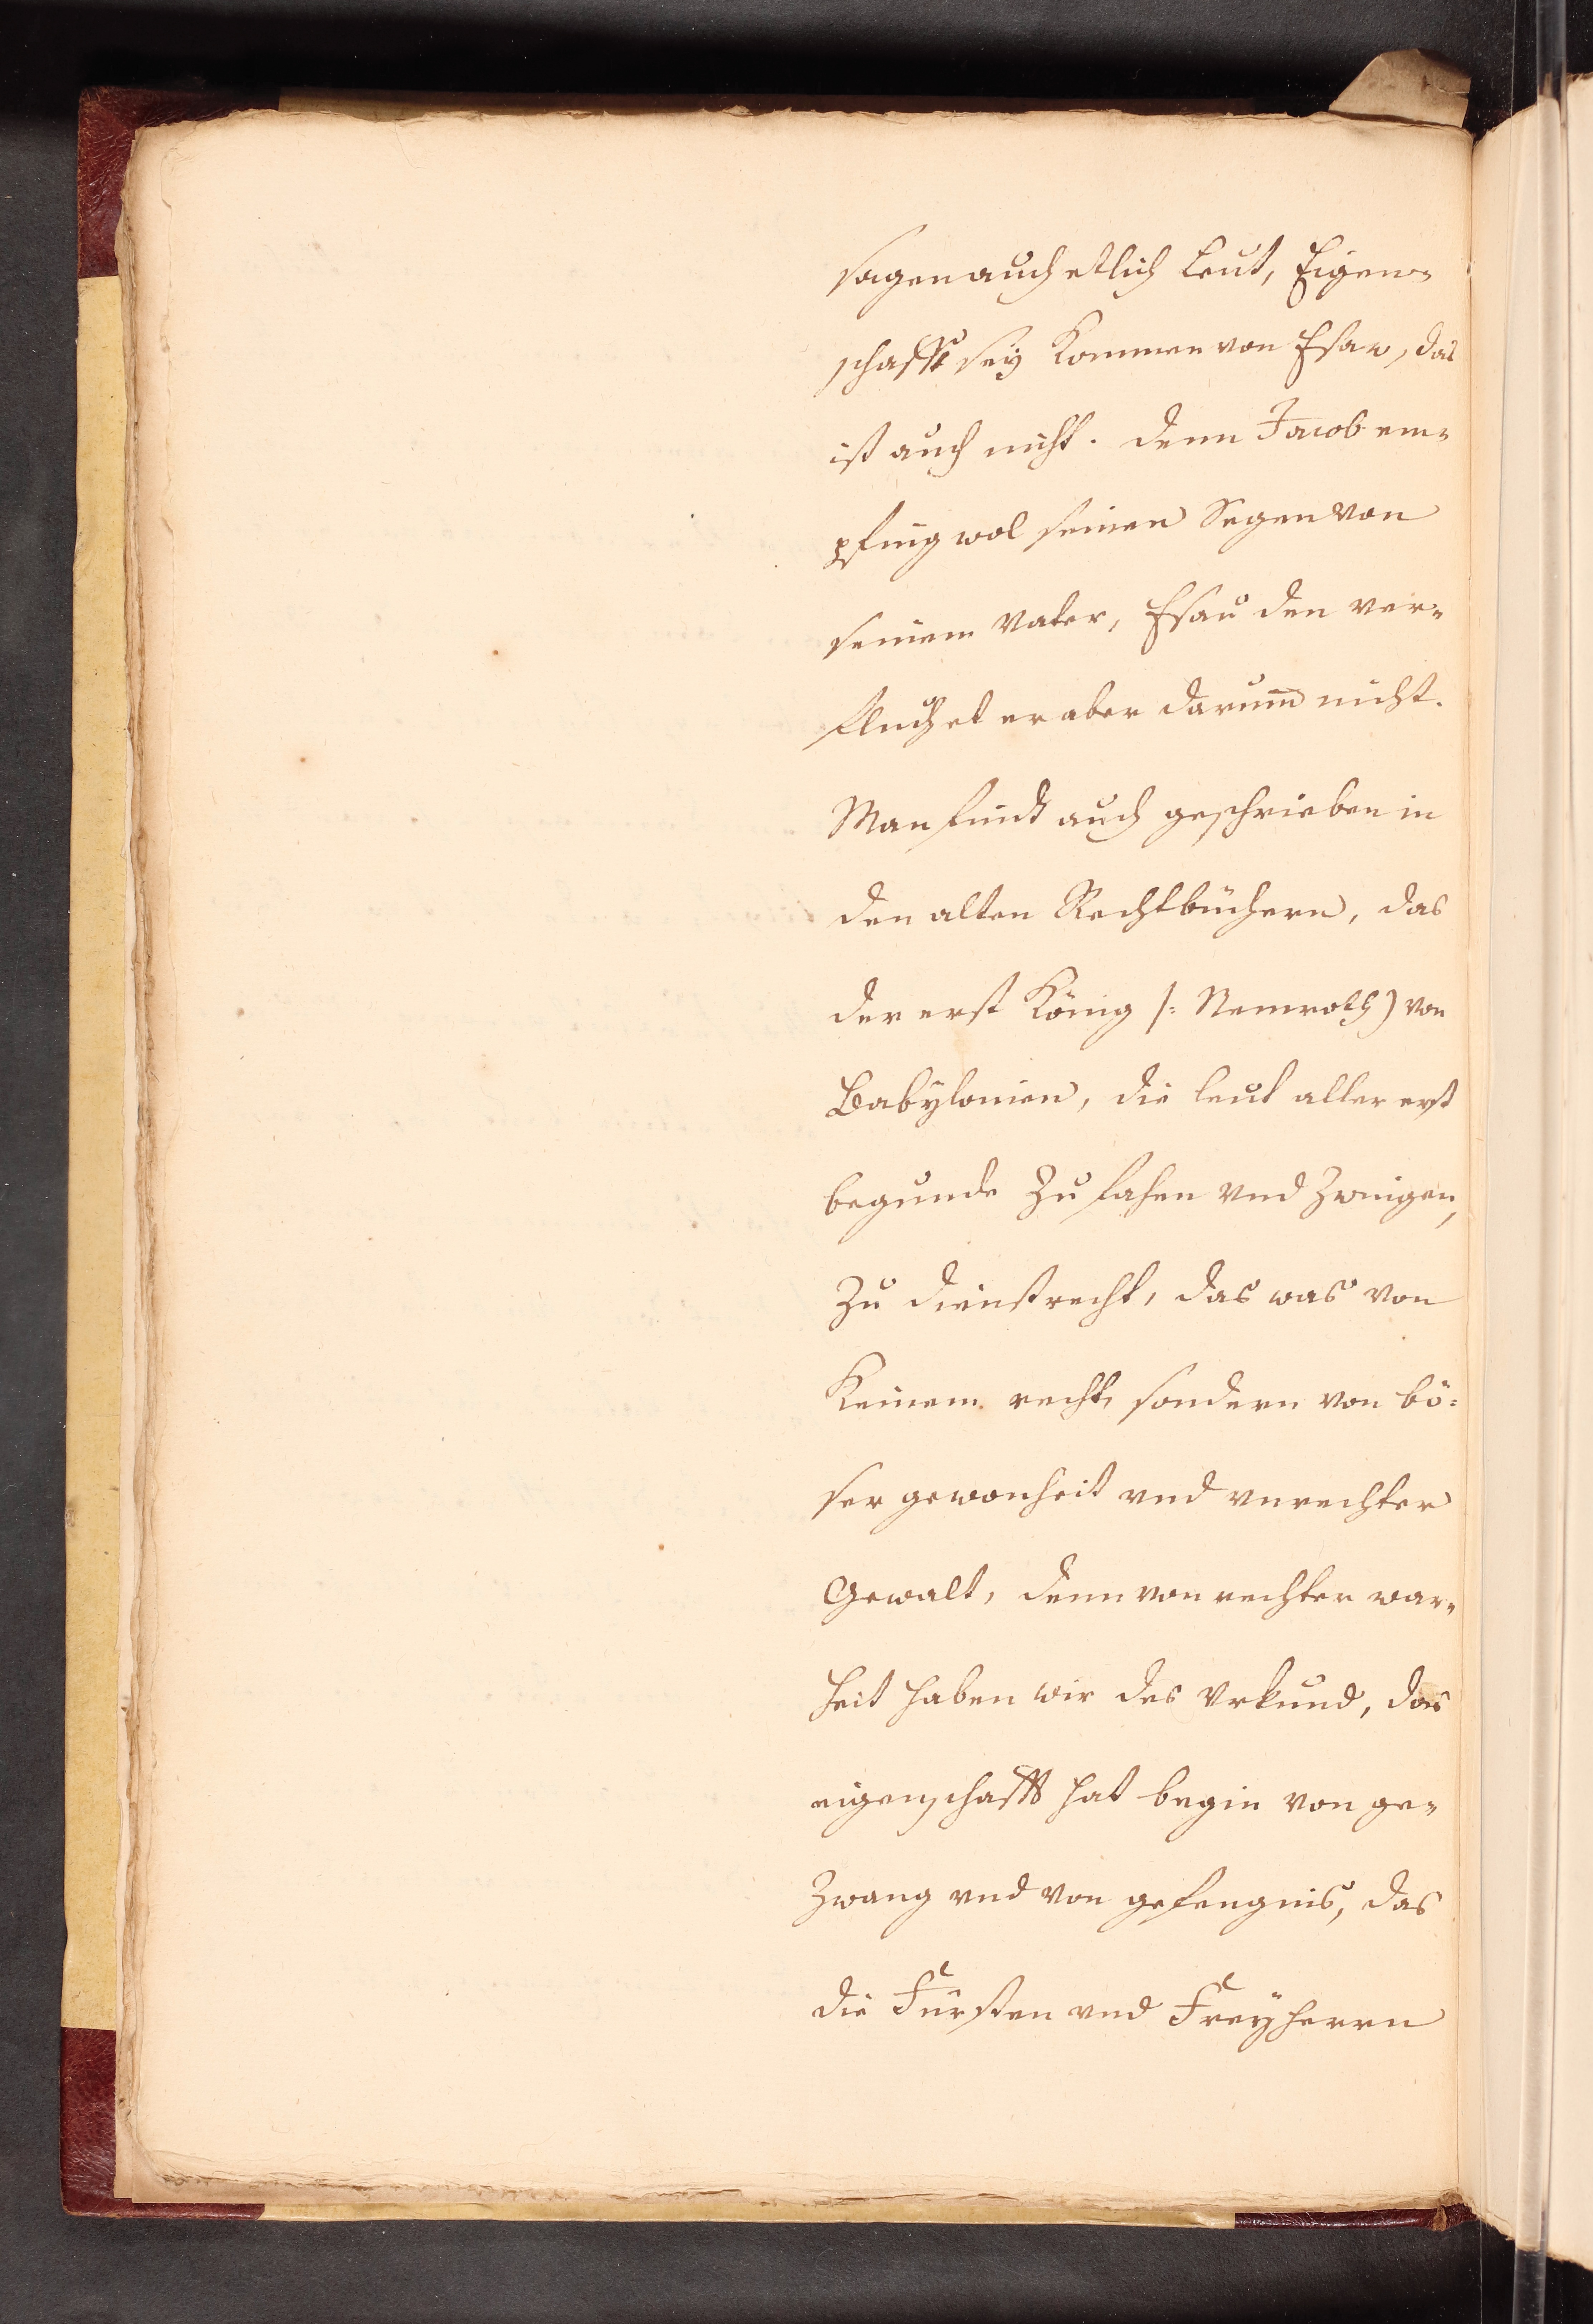 sagen auch etlich Leut, Eigen-
schafft seÿ kommen von Esaw, das
ist auch nicht. denn Jacob em-
pfing wol seinen Segen von
seinem Vater, Esau den ver-
fluchet er aber darumb nicht.
Man findt auch geschrieben in
den alten Rechtbüchern, das
der erst König /: Nemroth) von
Babÿlonien, die leut aller erst
begunde zu fahen vnd zwingen,
zu dienstrecht, das was von
keinem recht, sondern von bö-
ser gewonheit vnd vnrechter
Gewalt, denn von rechter war-
heit haben wir des Vrkund, das
eigenschafft hat begin von ge-
zwang vnd von gefengnis, das
die Fürsten vnd Freÿherrn